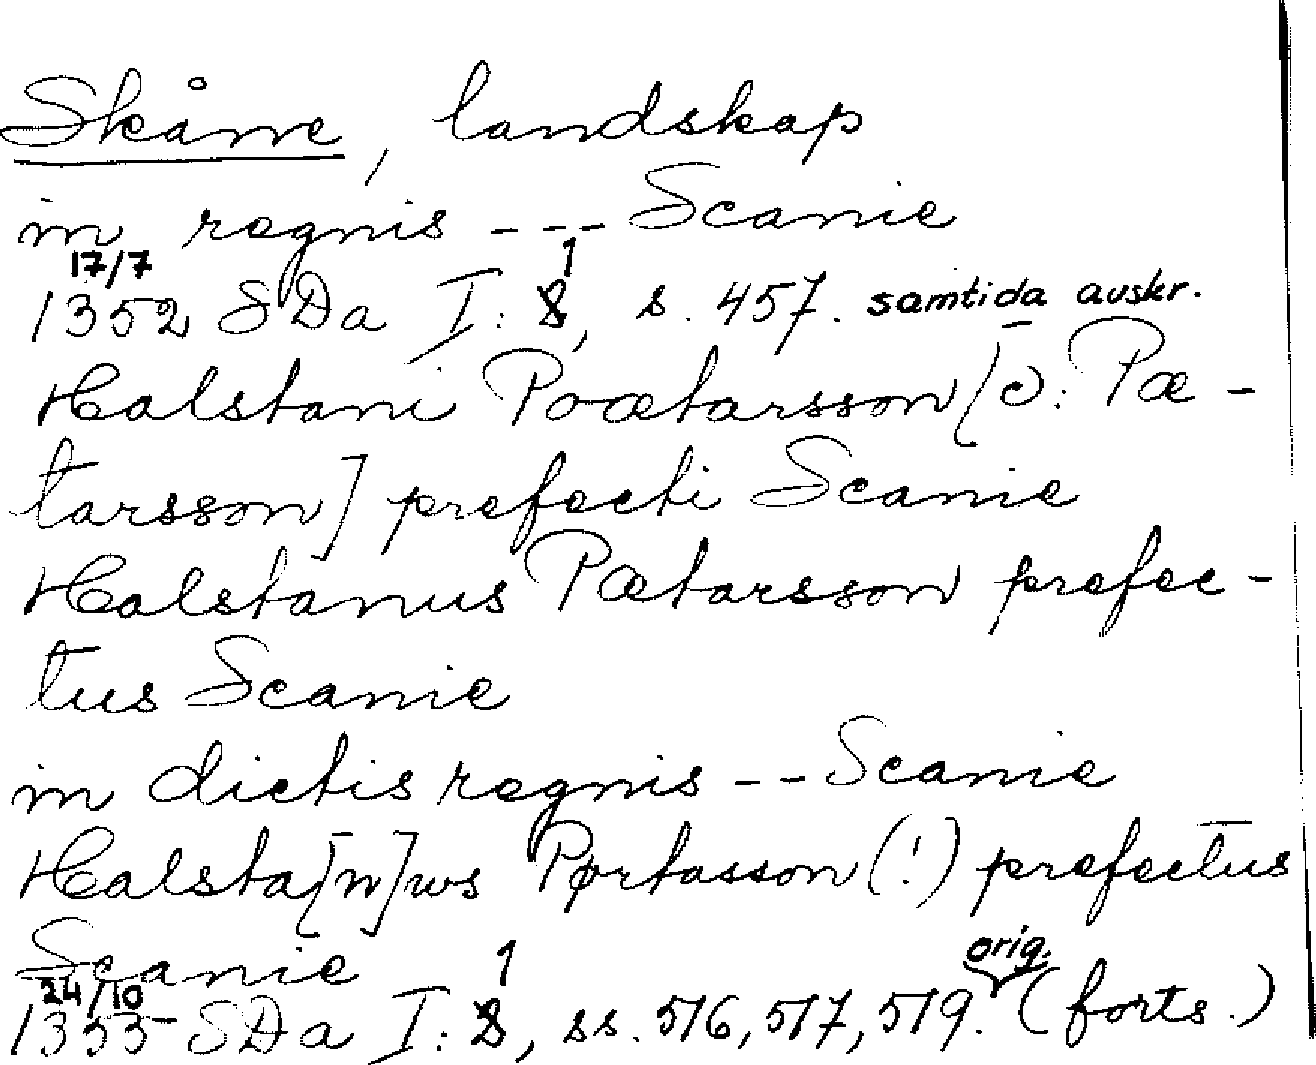 Skåne, landskap
in regnis --- Scanie
17/7 1
1352 SDa I: 8, s. 457. samtida avskr.
Halstani Poætarsson [ɔ: Pæ-
tarsson] prefecti Scanie
Halstanus Pætarsson prefec-
tus Scanie
in dictis regnis -- Scanie
Halsta[n]ws Pørtasson (!) prefectus
Scanie
24/10 1 orig.
1353 SDa I: 8, ss. 516, 517, 519. (forts.)